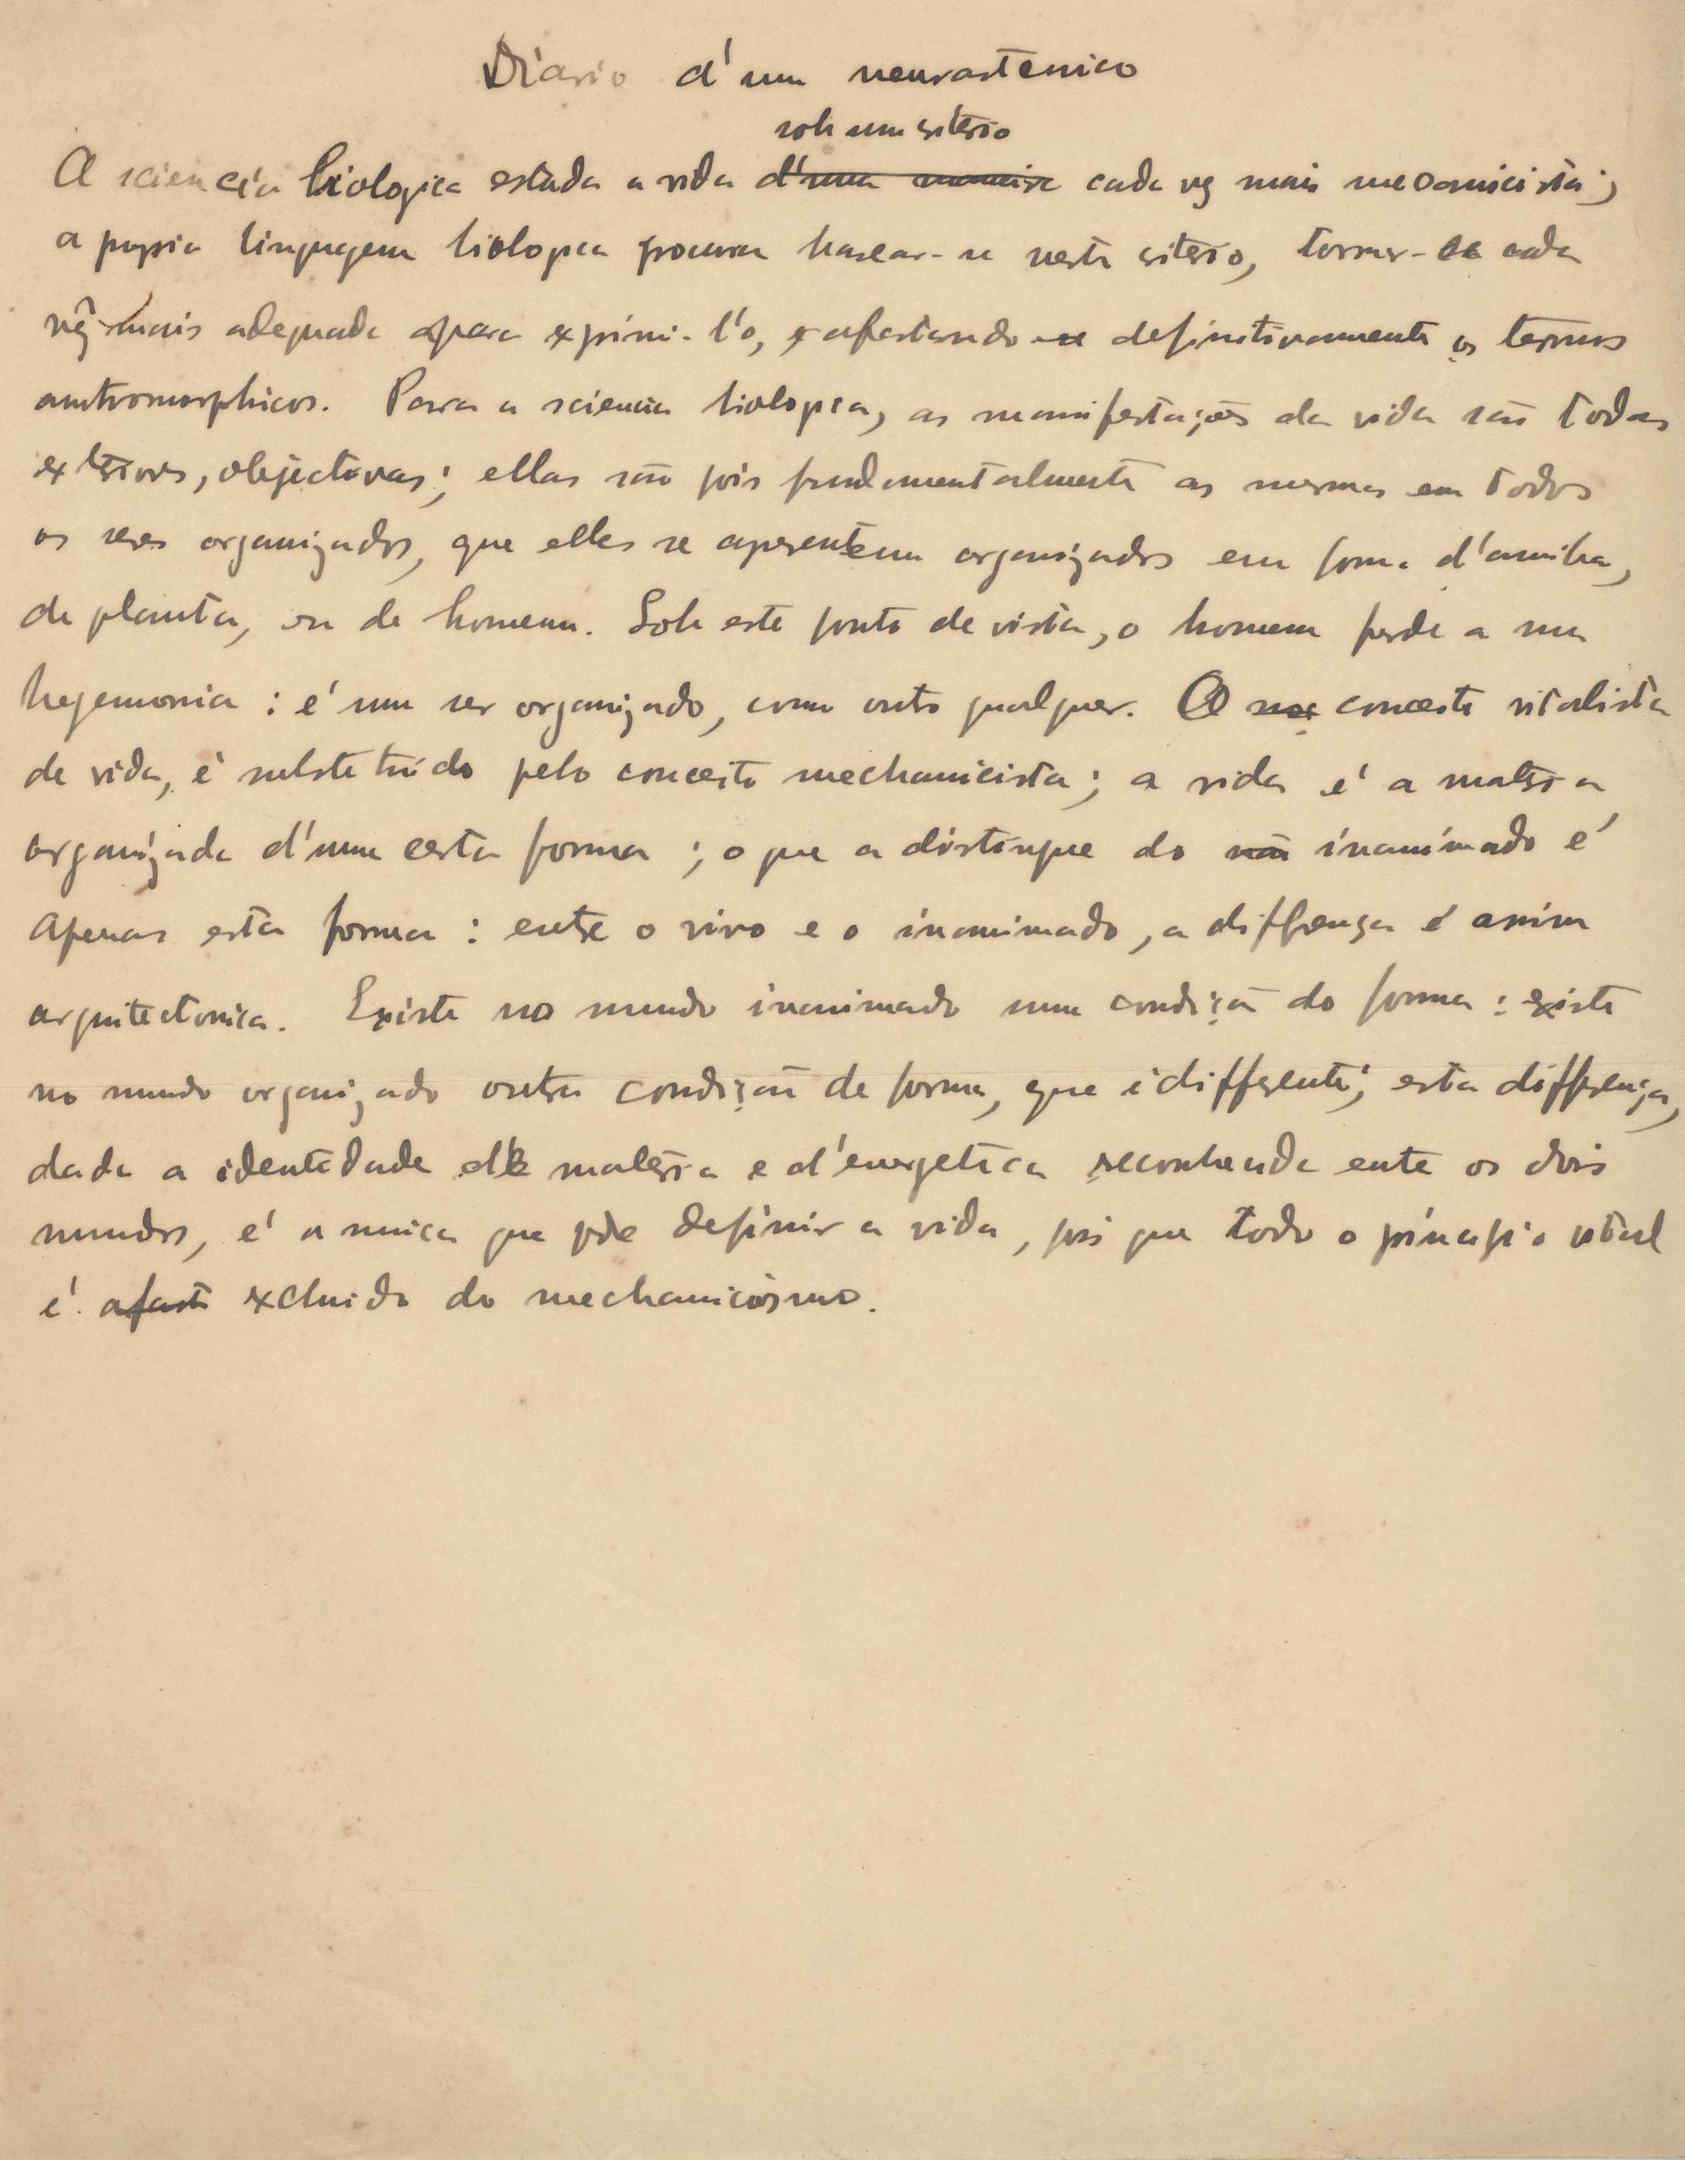 Diario d'um neurastenico
sob um criterio
A sciencia biologica estuda a vida d'uma maneira cada vez mais mecanicista;
a propria linguagem biologica procura basear-se neste criterio, tornar-se cada
vez mais adequada para exprimi-l'o, afastando definitivamente os termos
antromorphicos. Para a sciencia biologica, as manifestações da vida são todas
exteriores, objectivas; ellas são pois fundamentalmente as mesmas em todos
os seres organizados, que elles se apresentem organizados em forma d'amiba,
de planta, ou de homem. Sob este ponto de vista, o homem perde a sua
hegemonia: é um ser organizado, como outro qualquer. O conceito vitalista
de vida, é substituído pelo conceito mechanicista; a vida é a materia
organizada d'uma certa forma; o que a distingue do não inanimado é
apenas esta forma: entre o vivo e o inanimado, a differença é assim
arquitectonica. Existe no mundo inanimado uma condição de forma: existe
no mundo organizado outra condição de forma, que é differente; esta differença,
dada a identidade de materia e d'energetica reconhecida entre os dois
mundos, é a unica que pode definir a vida, pois que todo o principio vital
é afasto excluido do mechanicismo.